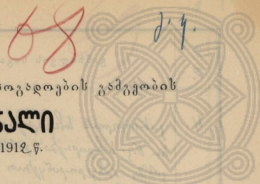 68 გ. ყ.
ოგადოების გამგეობის
ნალი
1912 წ.